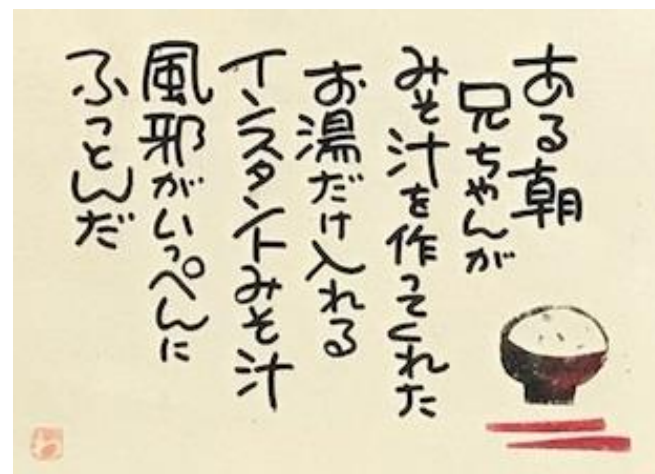 ある朝
兄ちゃんが
みそ汁を作ってくれた
お湯だけ入れる
インスタントみそ汁
風邪がいっぺんに
ふっとんだ